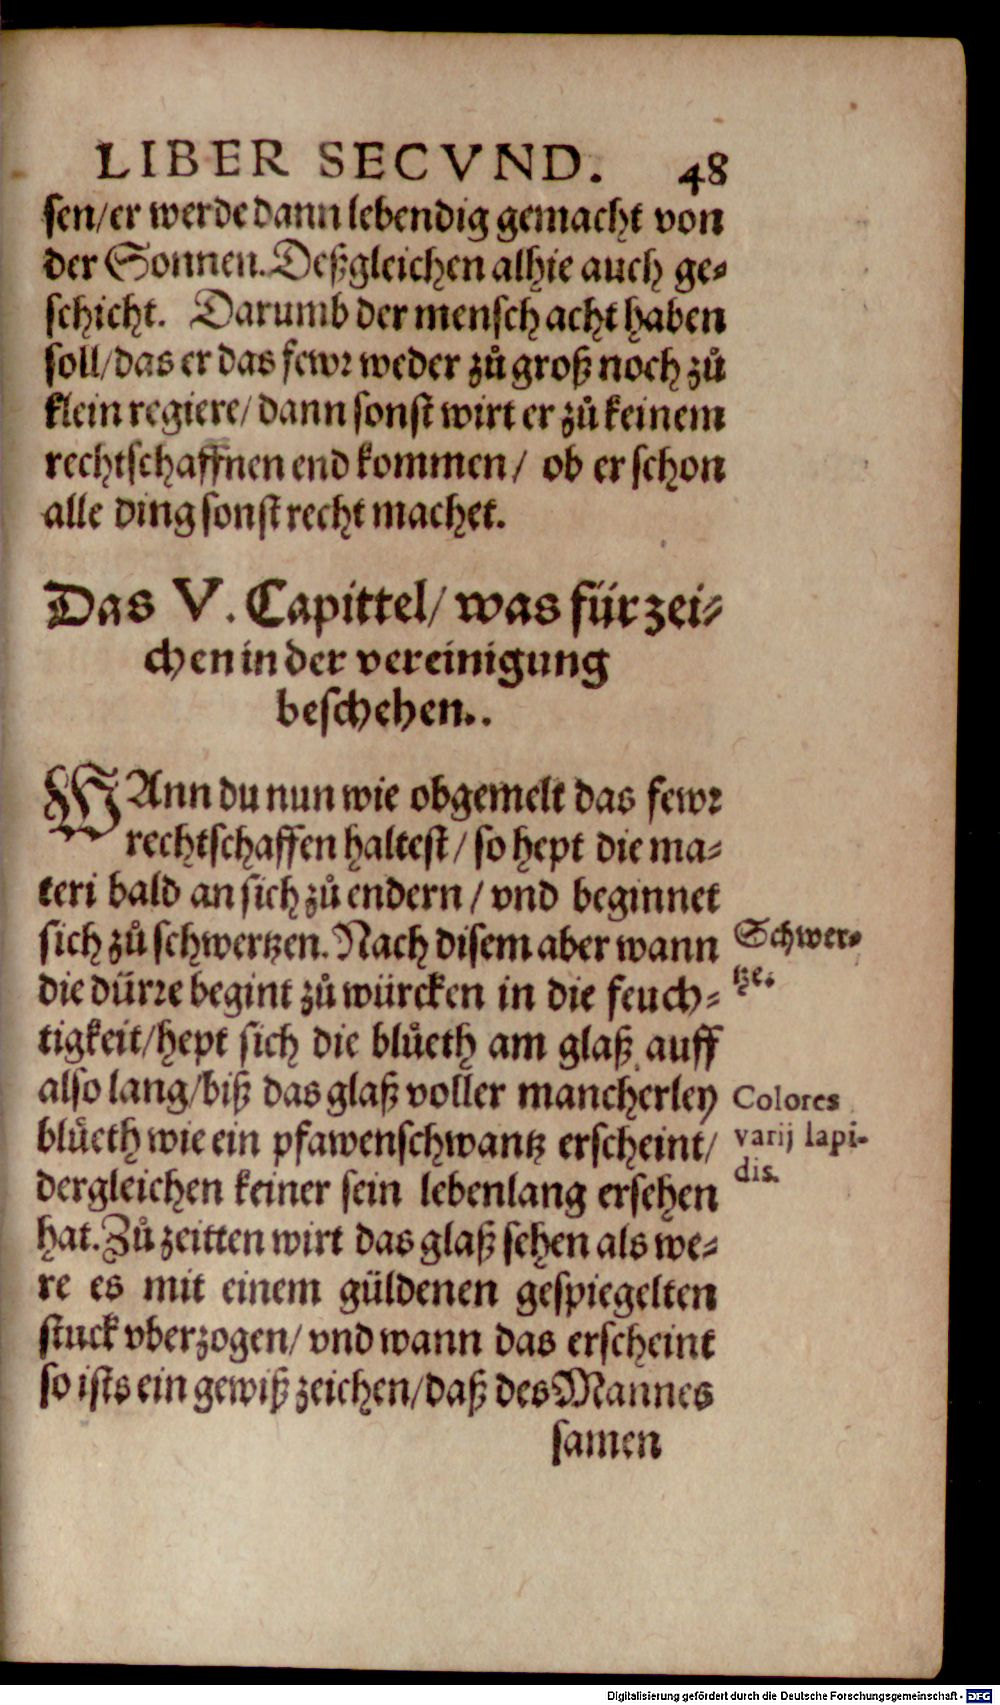 LIBER SECVND. 48
sen/er werde dann lebendig gemacht von
der Sonnen. Deßgleichen alhie auch ge-
schicht. Darumb der mensch acht haben
soll/das er das fewr weder zů groß noch zů
klein regiere/ dann sonst wirt er zů keinem
rechtschaffnen end kommen/ ob er schon
alle ding sonst recht machet.
Das V. Capittel/ was für zei-
chen in der vereinigung
beschehen..
WAnn du nun wie obgemelt das fewr
rechtschaffen haltest/ so hept die ma-
teri bald an sich zů endern/ vnd beginnet
sich zů schwertzen. Nach disem aber wann
Schwer-
tze.
die dürre begint zů würcken in die feuch-
tigkeit/hept sich die blůeth am glaß auff
also lang/biß das glaß voller mancherley
Colores
varij lapi-
dis.
blůeth wie ein pfawenschwantz erscheint/
dergleichen keiner sein lebenlang ersehen
hat. Zů zeitten wirt das glaß sehen als we-
re es mit einem güldenen gespiegelten
stuck vberzogen/ vnd wann das erscheint
so ists ein gewiß zeichen/daß des Mannes
samen
Digitalisierung gefördert durch die Deutsche Forschungsgemeinschaft - DFG